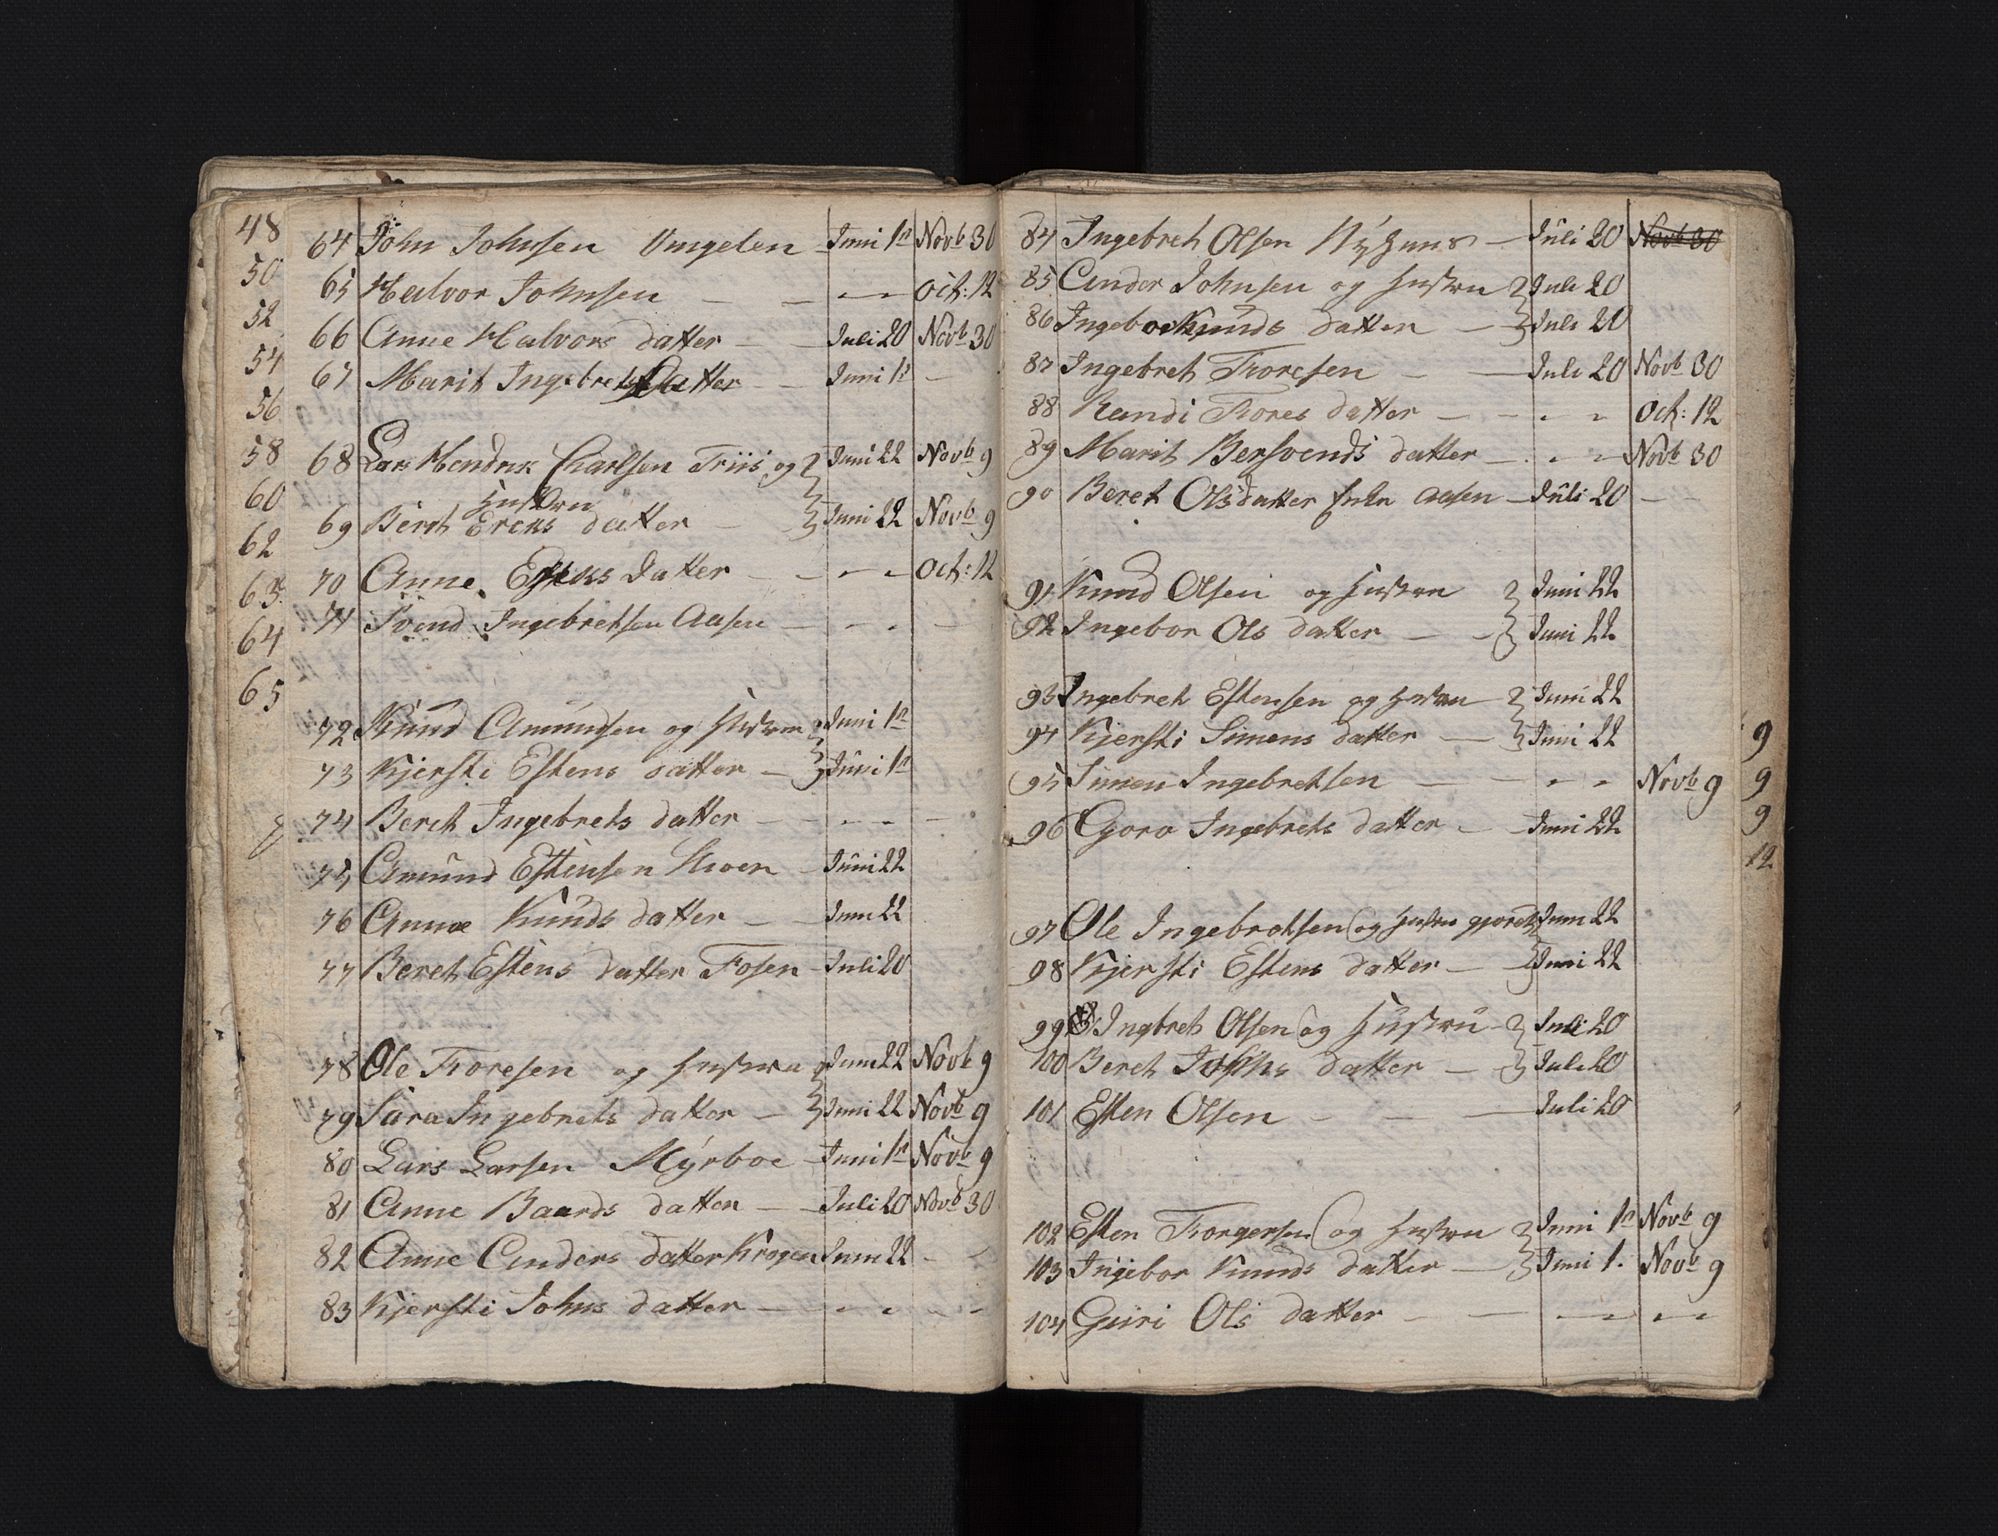 48
50
52
54
56
58
60
62
63
64
65
64 John Johnsen Vingelen Juni 1st Novb 30
65 Halvor Johnsen — — — — Oct: 12
66 Anne Halvors datter — — Juli 20 Novb 30
67 Marit Ingebrets Datter — Juni 1st —
68 Lars Hendrik Charlsen Friis og Juni 22 Novb 9
Hustru
69 Berit Ericks datter — Juni 22 Novb 9
70 Anne datter — — — Oct: 12
71 Svend Ingebretsen Aasen — — — —
72 Knud Amundsen og Hustru Juni 1st
73 Kjersti Estens datter — Juni 1st
74 Beret Ingebrets datter — — — — —
75 Amund Estensen Moen — Juni 22
76 Anne Knuds datter — — Juni 22
77 Beret Estens datter Fosen — Juli 20
78 Ole Toresen og Hustru Juni 22 Novb 9
79 Sara Ingebrets datter — Juni 22 Novb 9
80 Lars Larsen Myrboe — Juni 1st Novb 9
81 Anne Baards datter — Juli 20 Novb 30
82 Anne Anders datter Krogen Juni 22 - -
83 Kjersti Johns datter — - - - -
84 Ingebret Olsen — Juli 20 Novb 30
85 Ander Johnsen og Hustru Juli 20
86 Ingebor Knuds datter — Juli 20
87 Ingebret Toresen — — Juli 20 Novb 30
88 Randi Tores datter — - - - Oct: 12
89 Marit Bersvends datter — - - - Novb 30
90 Beret Olsdatter Enke Aasen — Juli 20 — —
91 Knud Olsen og Hustru Juni 22
92 Ingebor Ols datter — — Juni 22
93 Ingebret Estensen og Hustru Juni 22
94 Kjersti Simens datter — Juni 22
95 Simen Ingebretsen — — - - Novb 9
96 Goro Ingebrets datter — — Juni 22
97 Ole Ingebretsen og Hustru Juni 22
98 Kjersti Estens datter — Juni 22
99 Ingebret Olsen og Hustru Juli 20
100 Beret datter — Juli 20
101 Esten Olsen — — — Juli 20
102 Esten Torgersen og Hustru Juni 1st Novb 9
103 Ingebor Knuds datter — Juni 1. Novb 9
104 Guri Ols datter — — — — — —
9
9
9
12